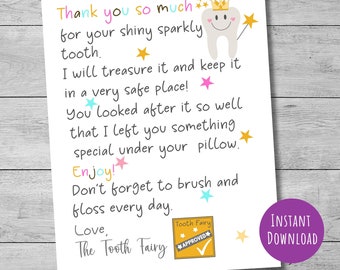 Thank you so much
for your shiny sparkly
tooth.
I will treasure it and keep it
in a very safe place!
You looked after it so well
that I left you something
special under your pillow.
Enjoy!
Don't forget to brush and
floss every day.
Love,
The Tooth Fairy
Tooth Fairy
APPROVED
INSTANT
DOWNLOAD